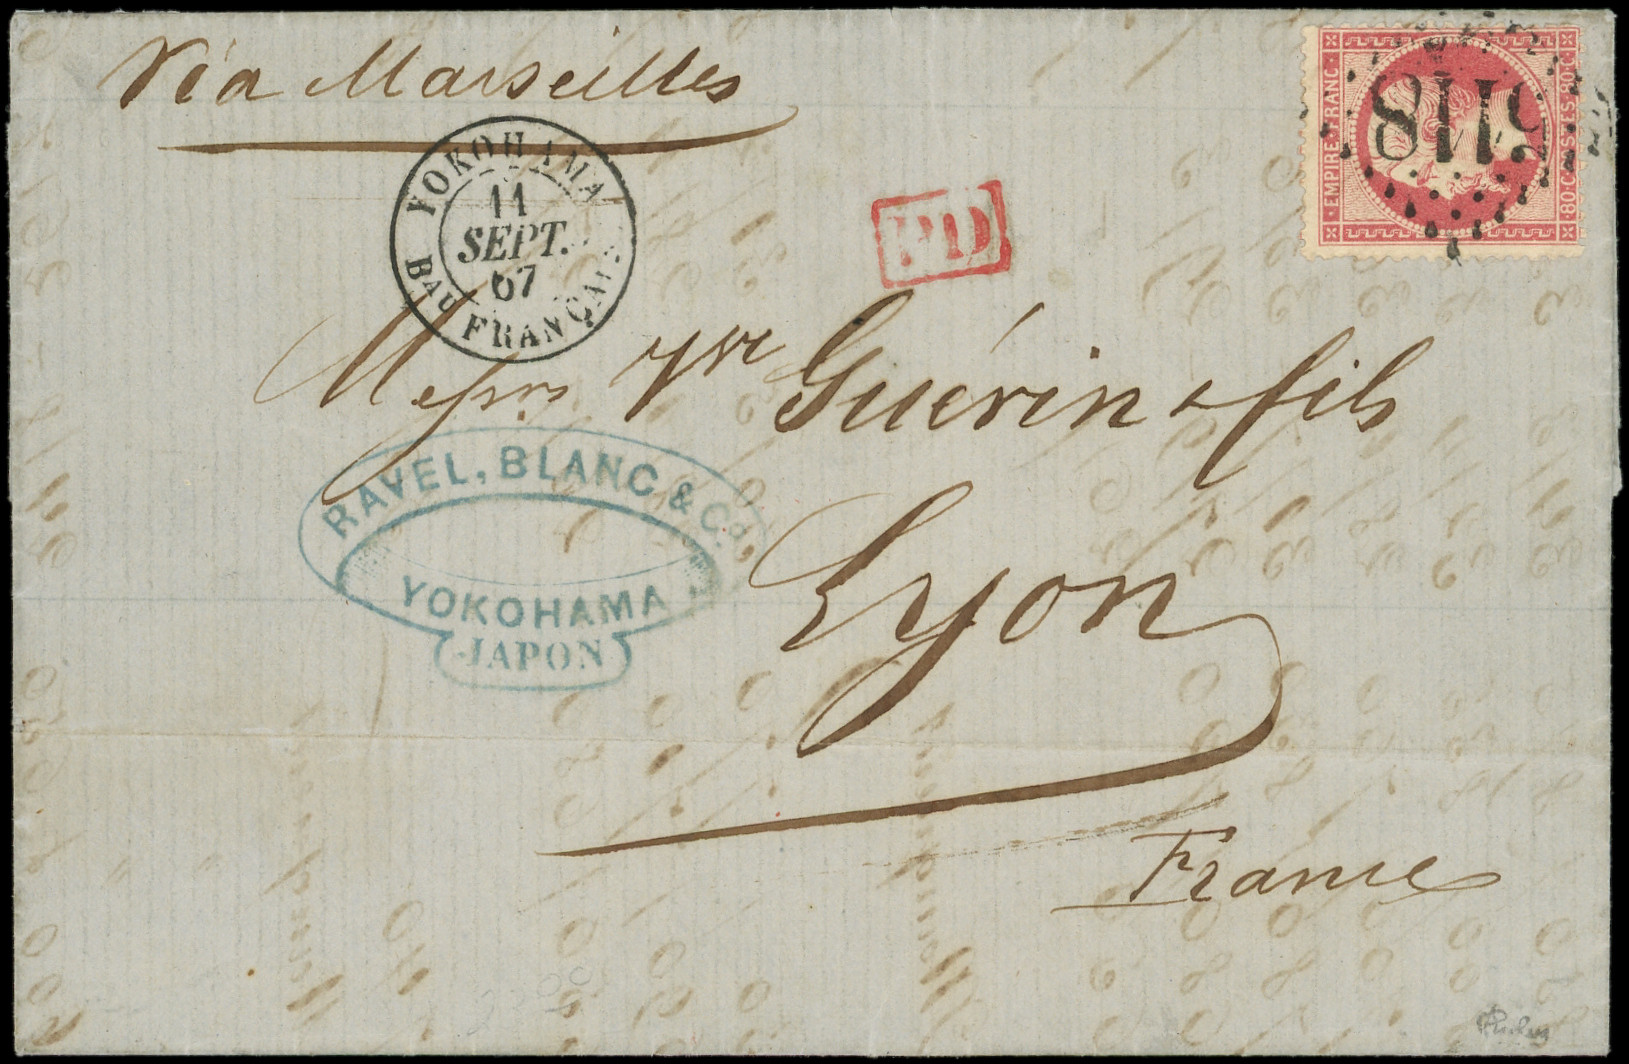 Via Marseilles
YOKOHAMA
11
SEPT.
67
BAU FRANÇAIS
PD
EMPIRE FRANC
80·C·POSTES·80·C
5118
Messrs Vve Guérin & fils
RAVEL, BLANC & Co.
YOKOHAMA
JAPON
Lyon
France